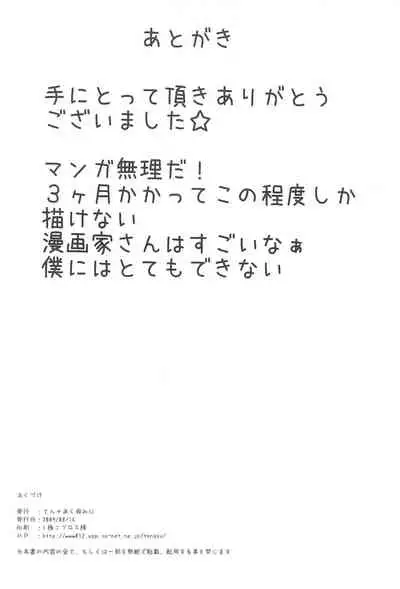 あとがき
手にとって頂きありがとう
ございました☆
マンガ無理だ！
３ヶ月かかってこの程度しか
描けない
漫画家さんはすごいなぁ
僕にはとてもできない
おくづけ
発行
発行日：2009/08/16
印刷
ＨＰ
※本書の内容の全て、もしくは一部を無断で転載、転用する事を禁じます